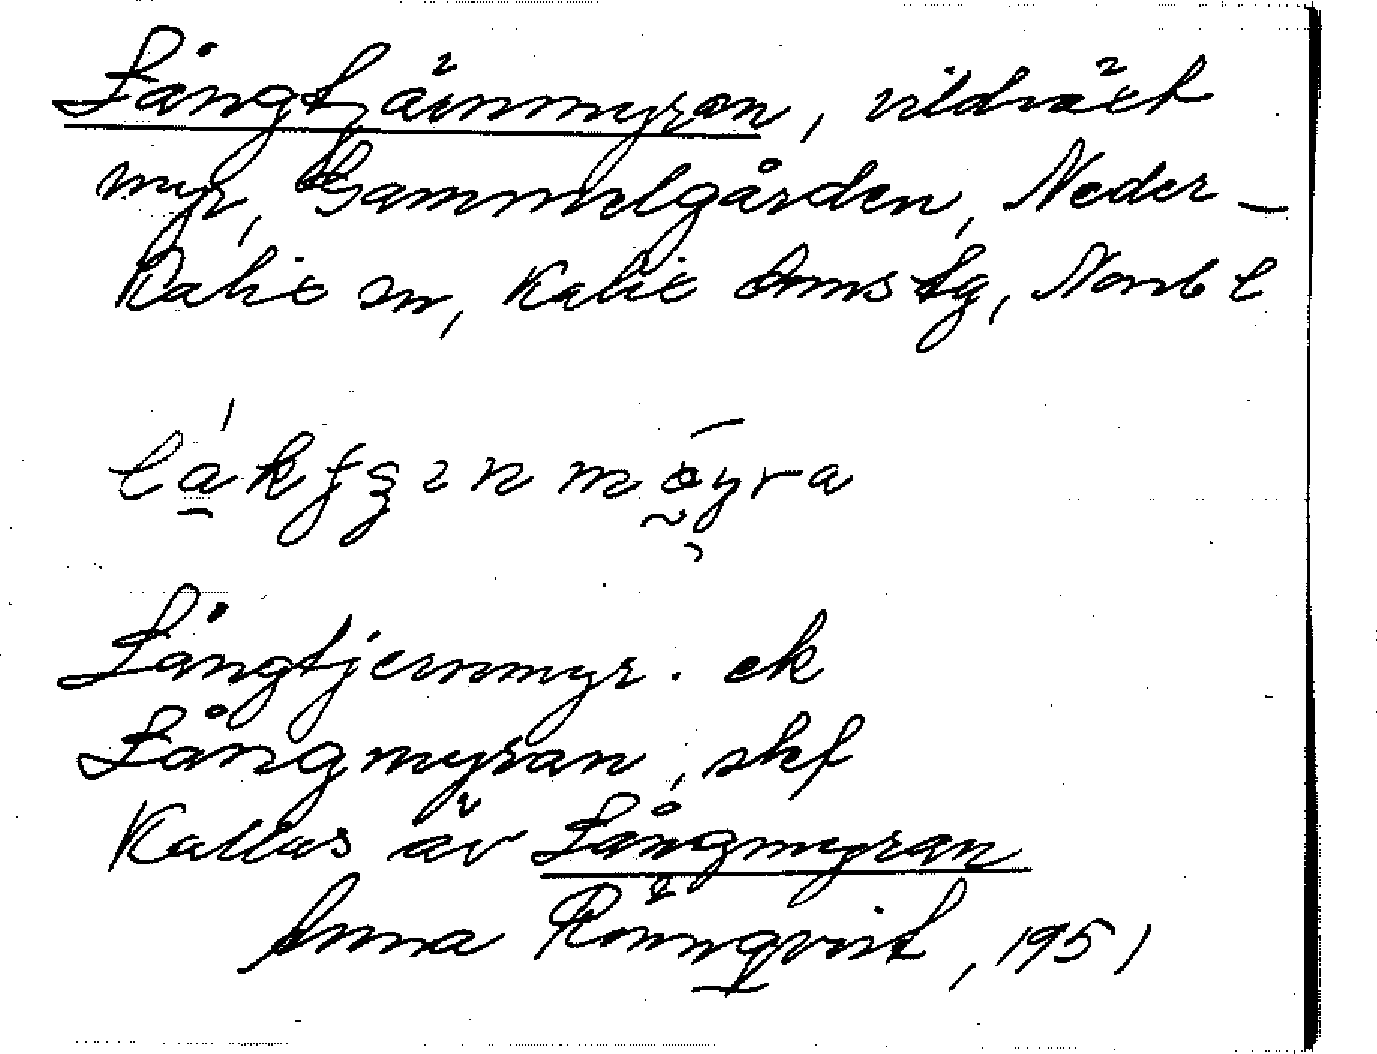 Långtjärnmyran, vildväxt
myr, Gammelgården, Neder-
Kalix sn, Kalix domstg, Norrb l
Långtjernmyr. ek
Långmyran, skf
Kallas äv Långmyran
Anna Rönnqvist, 1951